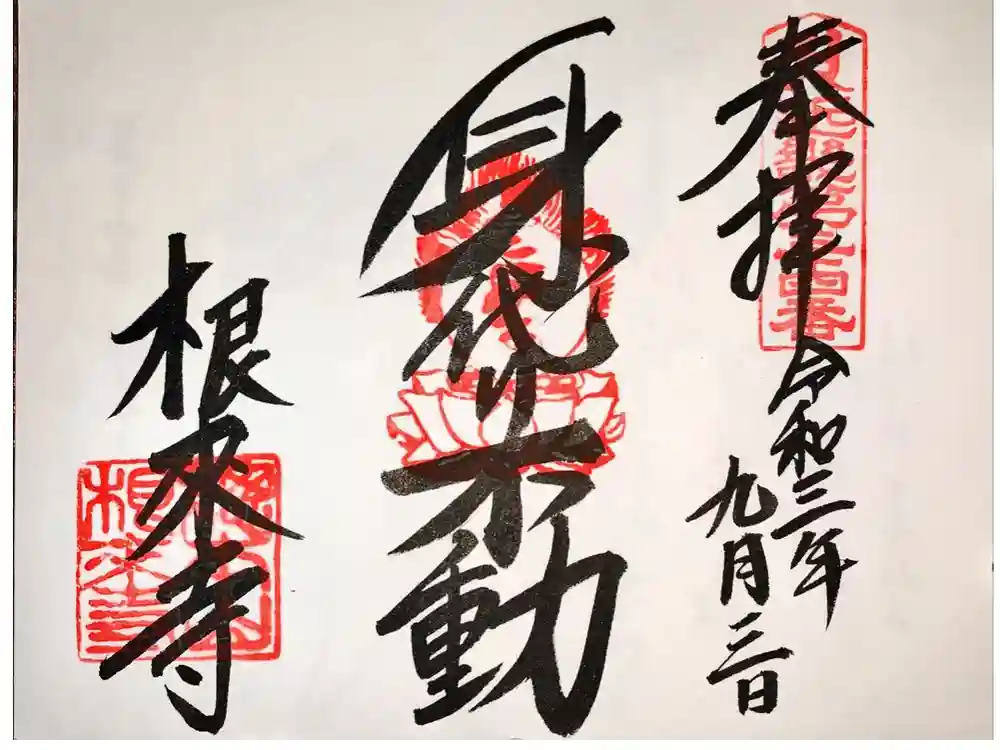 奉拝
令和三年
九月三日
身代り不動
根来寺